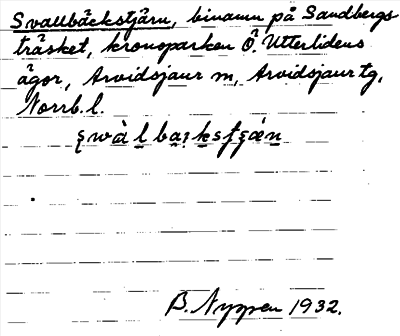 Svallbäckstjärn, binamn på Sandbergs-
träsket, kronoparken Ö. Utterlidens
ägor, Arvidsjaur m, Arvidsjaur tg,
Norrb. l.
B. Nyppen 1932.